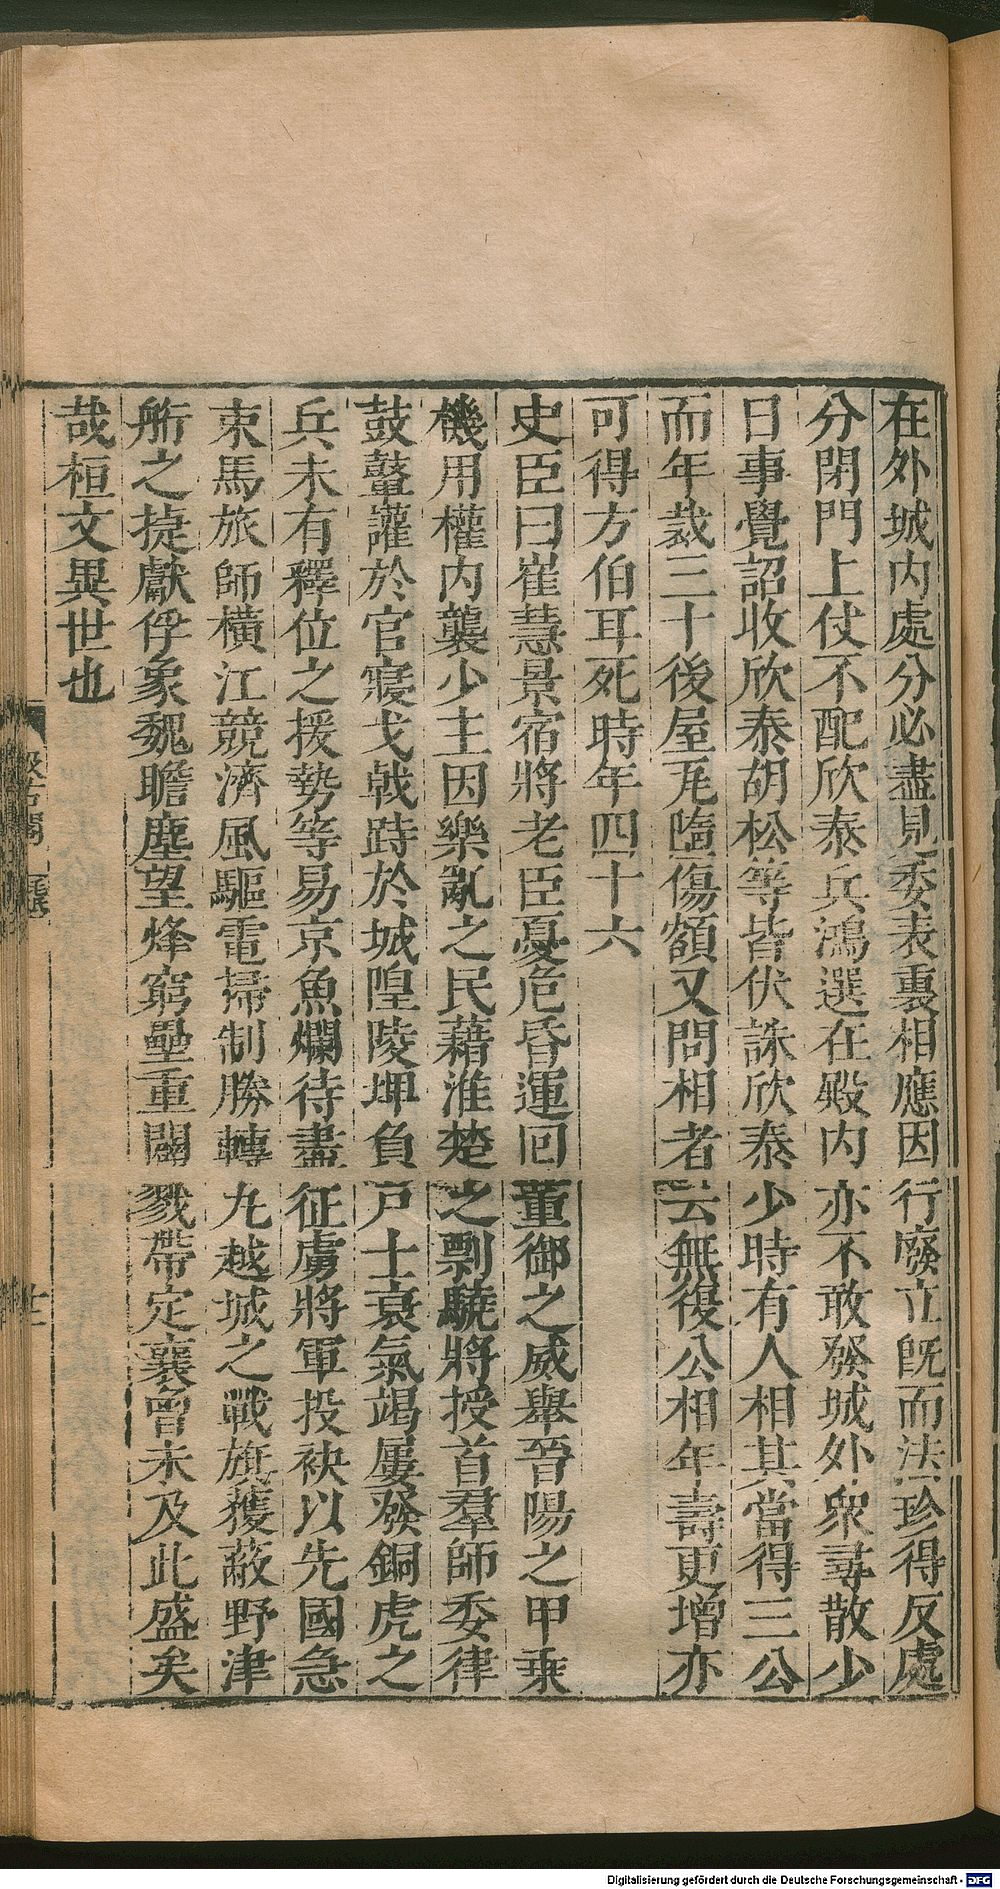 在外城內處分必盡見委表裏相應因行廢立旣而法珍得反處
分閉門上仗不配欣泰兵鴻選在殿內亦不敢發城外衆尋散少
日事覺詔收欣泰胡松等皆伏誅欣泰少時有人相其當得三公
而年裁三十後屋瓦墮傷額又問相者云無復公相年壽更增亦
可得方伯耳死時年四十六
史臣曰崔慧景宿將老臣憂危昏運回董御之威舉晉陽之甲乘
機用權內襲少主因樂亂之民藉淮楚之剽驍將授首羣師委律
鼓鼙讙於官寢戈戟跱於城隍陵埤負戸士衰氣竭屢發銅虎之
兵未有釋位之援勢等易京魚爛待盡征虜將軍投袂以先國急
束馬旅師橫江競濟風驅電掃制勝轉丸越城之戰旗獲蔽野津
䑪之捷獻俘象魏瞻塵望烽窮壘重闢戮帶定襄曾未及此盛矣
哉桓文異世也
Digitalisierung gefördert durch die Deutsche Forschungsgemeinschaft - DFG